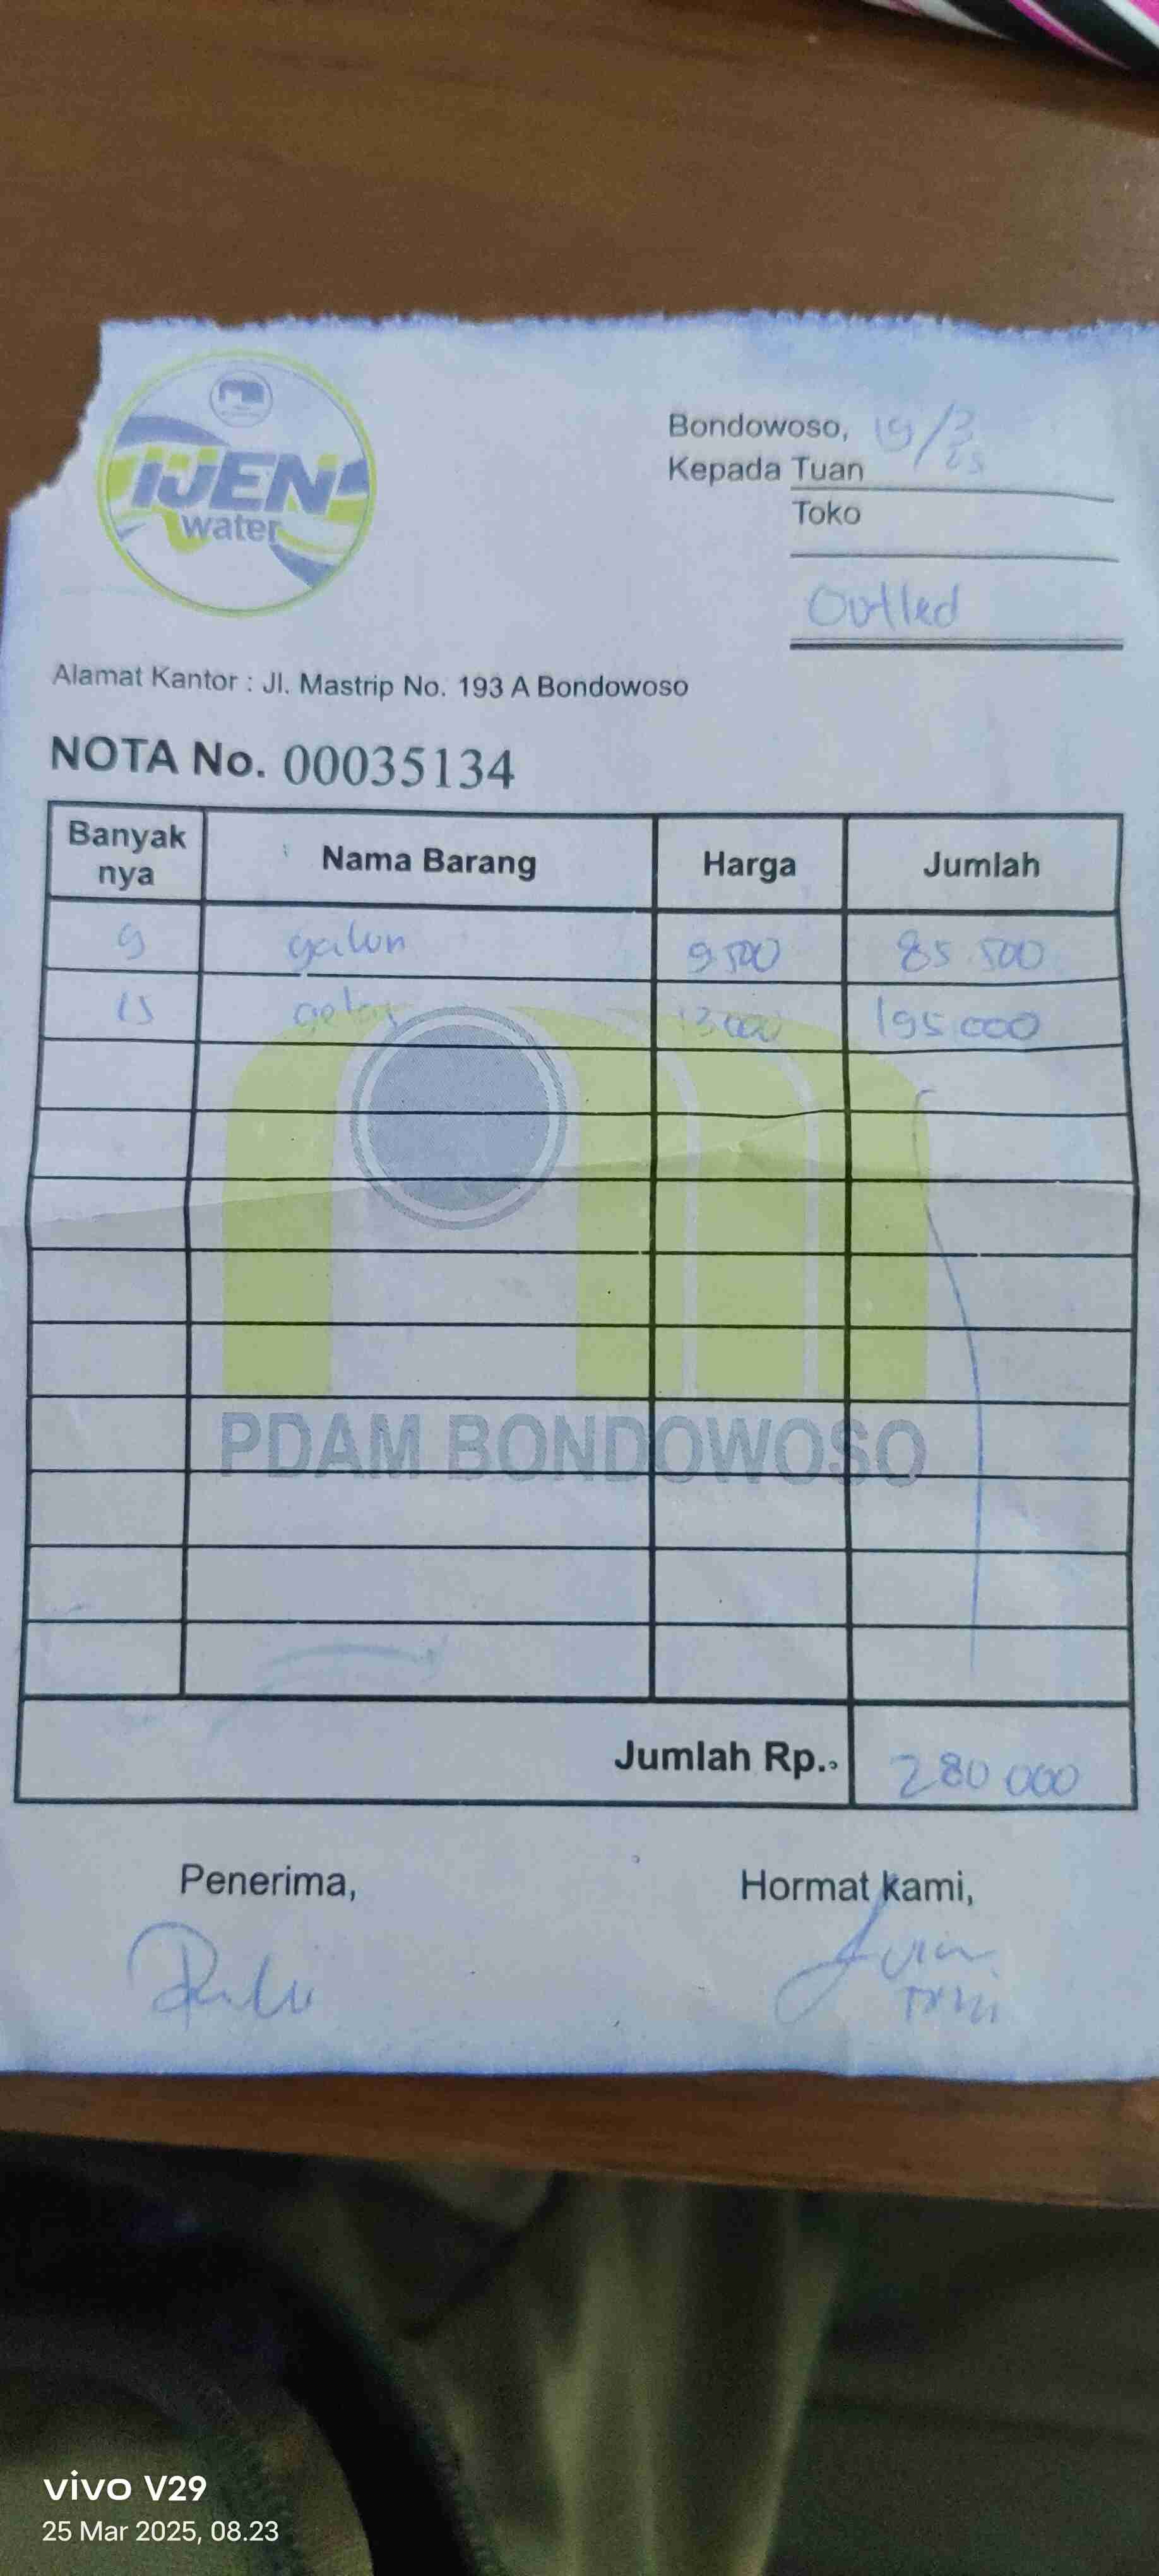 IJEN
water
Bondowoso, 19/3 25
Kepada Tuan
Toko
Outled
Alamat Kantor : Jl. Mastrip No. 193 A Bondowoso
NOTA No. 00035134
Banyak nya Nama Barang Harga Jumlah
9 galon 9.500 85.500
15 gelas 13.000 195.000
PDAM BONDOWOSO
Jumlah Rp. 280 000
Penerima, Hormat kami,
vivo V29
25 Mar 2025, 08.23